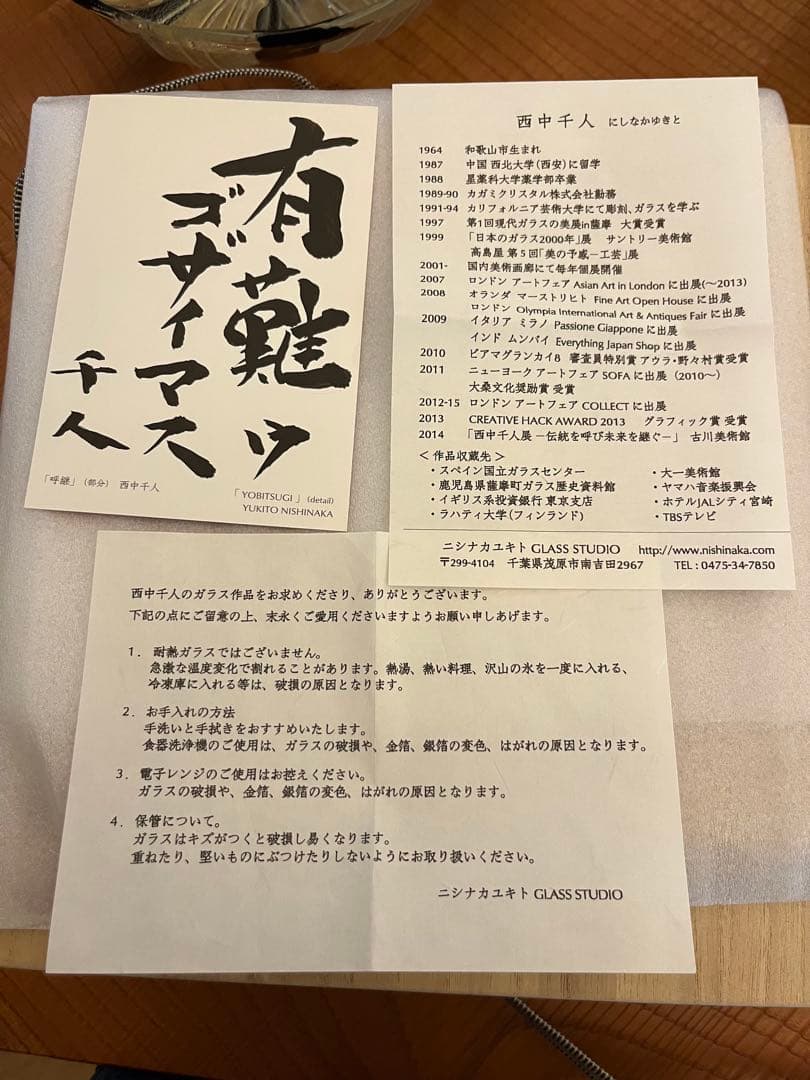 有難ウ
ゴザイマス
千人
「呼継」（部分） 西中千人
「YOBITSUGI」(detail)
YUKITO NISHINAKA
西中千人 にしなかゆきと
1964 和歌山市生まれ
1987 中国 西北大学（西安）に留学
1988 星薬科大学薬学部卒業
1989-90 カガミクリスタル株式会社勤務
1991-94 カリフォルニア芸術大学にて彫刻、ガラスを学ぶ
1997 第1回現代ガラスの美展in薩摩 大賞受賞
1999 「日本のガラス2000年」展 サントリー美術館
高島屋 第5回「美の予感－工芸」展
2001- 国内美術画廊にて毎年個展開催
2007 ロンドン アートフェア Asian Art in London に出展(～2013)
2008 オランダ マーストリヒト Fine Art Open House に出展
ロンドン Olympia International Art & Antiques Fair に出展
2009 イタリア ミラノ Passione Giappone に出展
インド ムンバイ Everything Japan Shop に出展
2010 ビアマグランカイ8 審査員特別賞 アウラ・野々村賞受賞
2011 ニューヨーク アートフェア SOFA に出展（2010～）
大桑文化奨励賞 受賞
2012-15 ロンドン アートフェア COLLECT に出展
2013 CREATIVE HACK AWARD 2013 グラフィック賞 受賞
2014 「西中千人展 －伝統を呼び未来を継ぐ－」 古川美術館
＜ 作品収蔵先 ＞
・スペイン国立ガラスセンター ・大一美術館
・鹿児島県薩摩町ガラス歴史資料館 ・ヤマハ音楽振興会
・イギリス系投資銀行 東京支店 ・ホテルJALシティ宮崎
・ラハティ大学（フィンランド） ・TBSテレビ
ニシナカユキト GLASS STUDIO http://www.nishinaka.com
〒299-4104 千葉県茂原市南吉田2967 TEL : 0475-34-7850
西中千人のガラス作品をお求めくださり、ありがとうございます。
下記の点にご留意の上、末永くご愛用くださいますようお願い申しあげます。
1． 耐熱ガラスではございません。
急激な温度変化で割れることがあります。熱湯、熱い料理、沢山の氷を一度に入れる、
冷凍庫に入れる等は、破損の原因となります。
2． お手入れの方法
手洗いと手拭きをおすすめいたします。
食器洗浄機のご使用は、ガラスの破損や、金箔、銀箔の変色、はがれの原因となります。
3． 電子レンジのご使用はお控えください。
ガラスの破損や、金箔、銀箔の変色、はがれの原因となります。
4． 保管について。
ガラスはキズがつくと破損し易くなります。
重ねたり、堅いものにぶつけたりしないようにお取り扱いください。
ニシナカユキト GLASS STUDIO